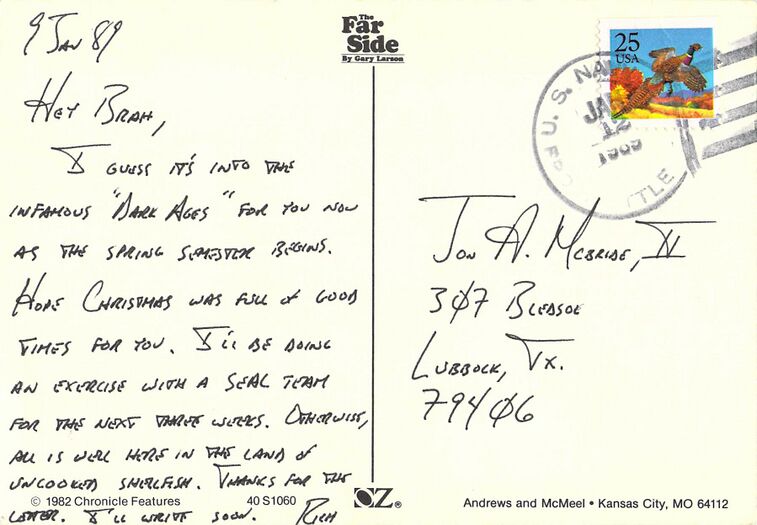 9 Jan 89
Hey Brah,
I guess it's into the
infamous "Dark Ages" for you now
as the spring semester begins.
Hope Christmas was full of good
times for you. I'll be doing
an exercise with a SEAL team
for the next three weeks. Otherwise,
all is well here in the land of
uncooked shellfish. Thanks for the
letter. I'll write soon. Rich
© 1982 Chronicle Features 40 S1060
The
Far
Side
By Gary Larson
OZ®
25
USA
U.S. NA
JAN
12
1989
TTLE
Jon A. McBride, IV
307 Bledsoe
Lubbock, Tx.
79406
Andrews and McMeel • Kansas City, MO 64112